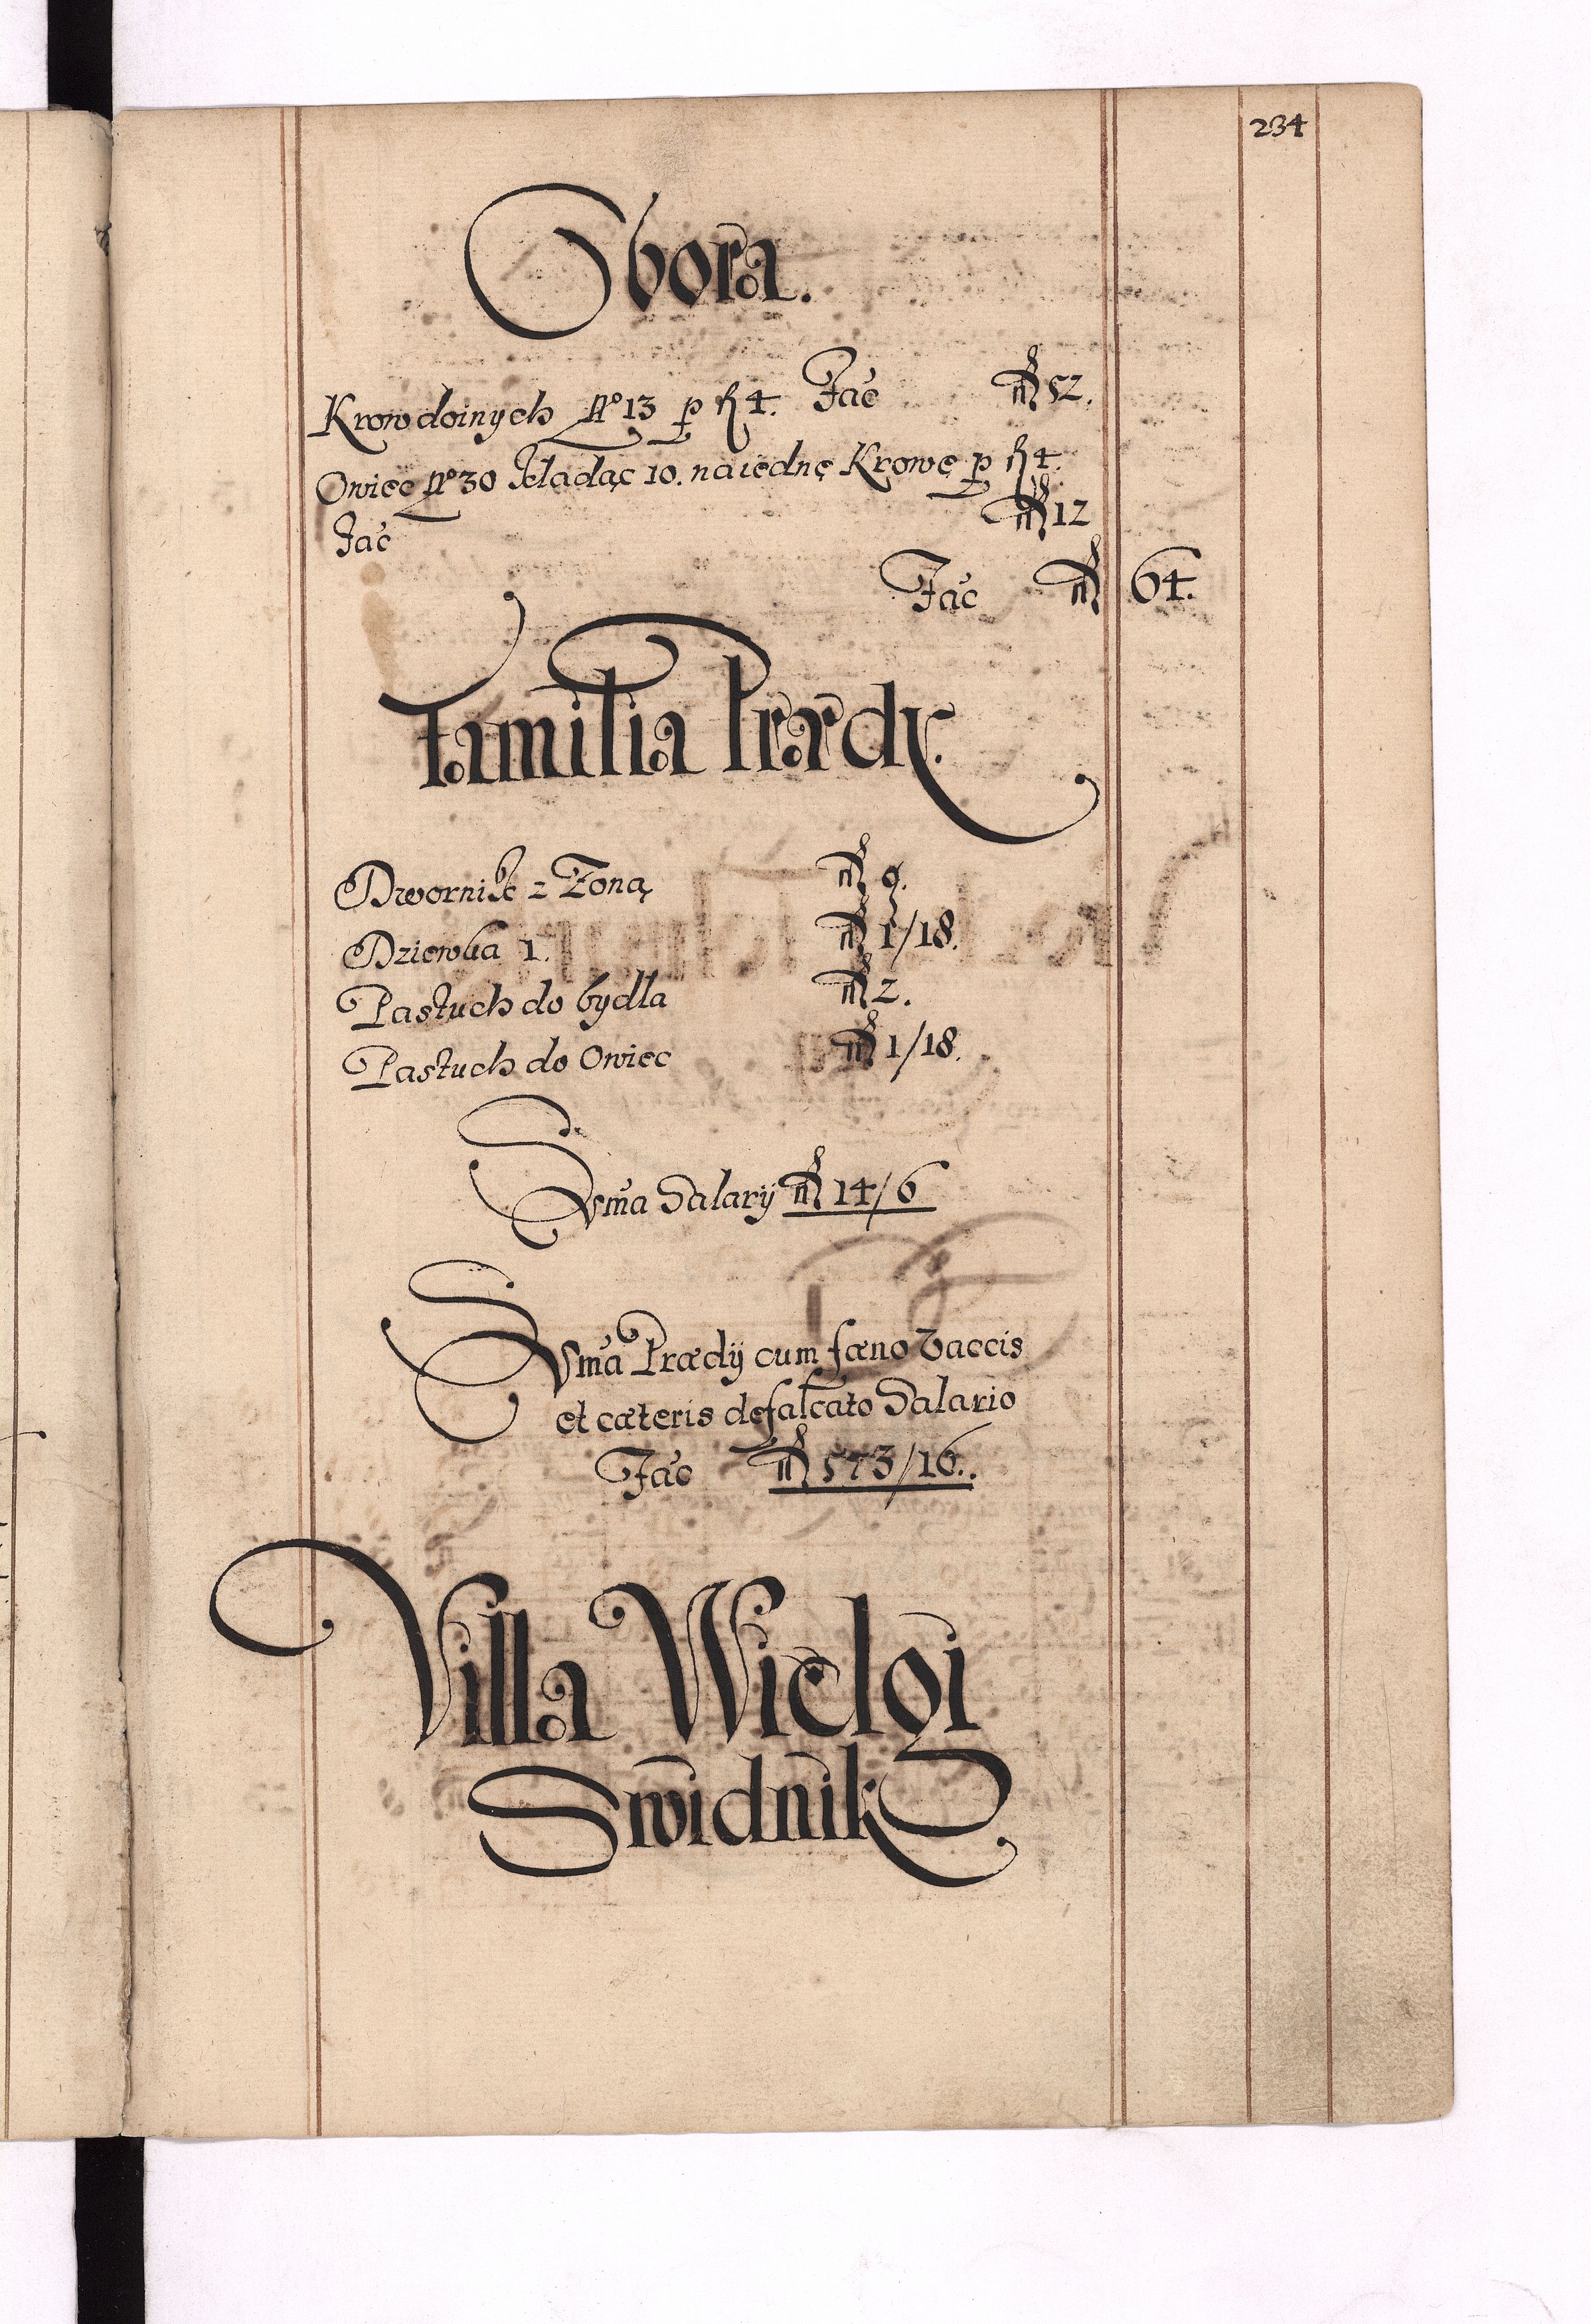 234
Obora.
Krow doinych No 13 p fl 4. Fac fl 52.
Owiec No 30 kładąc 10. na iednę Krowę p fl 4.
Fac fl 12
Fac fl 64.
Familia Prædy.
Dwornik z Zoną fl 9.
Dziewka 1. fl 1/18.
Pastuch do bydla fl 2.
Pastuch do Owiec fl 1/18.
Suma Salarij fl 14/6
Suma Prædij cum fœno Vaccis
et cæteris defalcato Salario
Fac fl 573/16.
Villa Wielgi
Swidnik